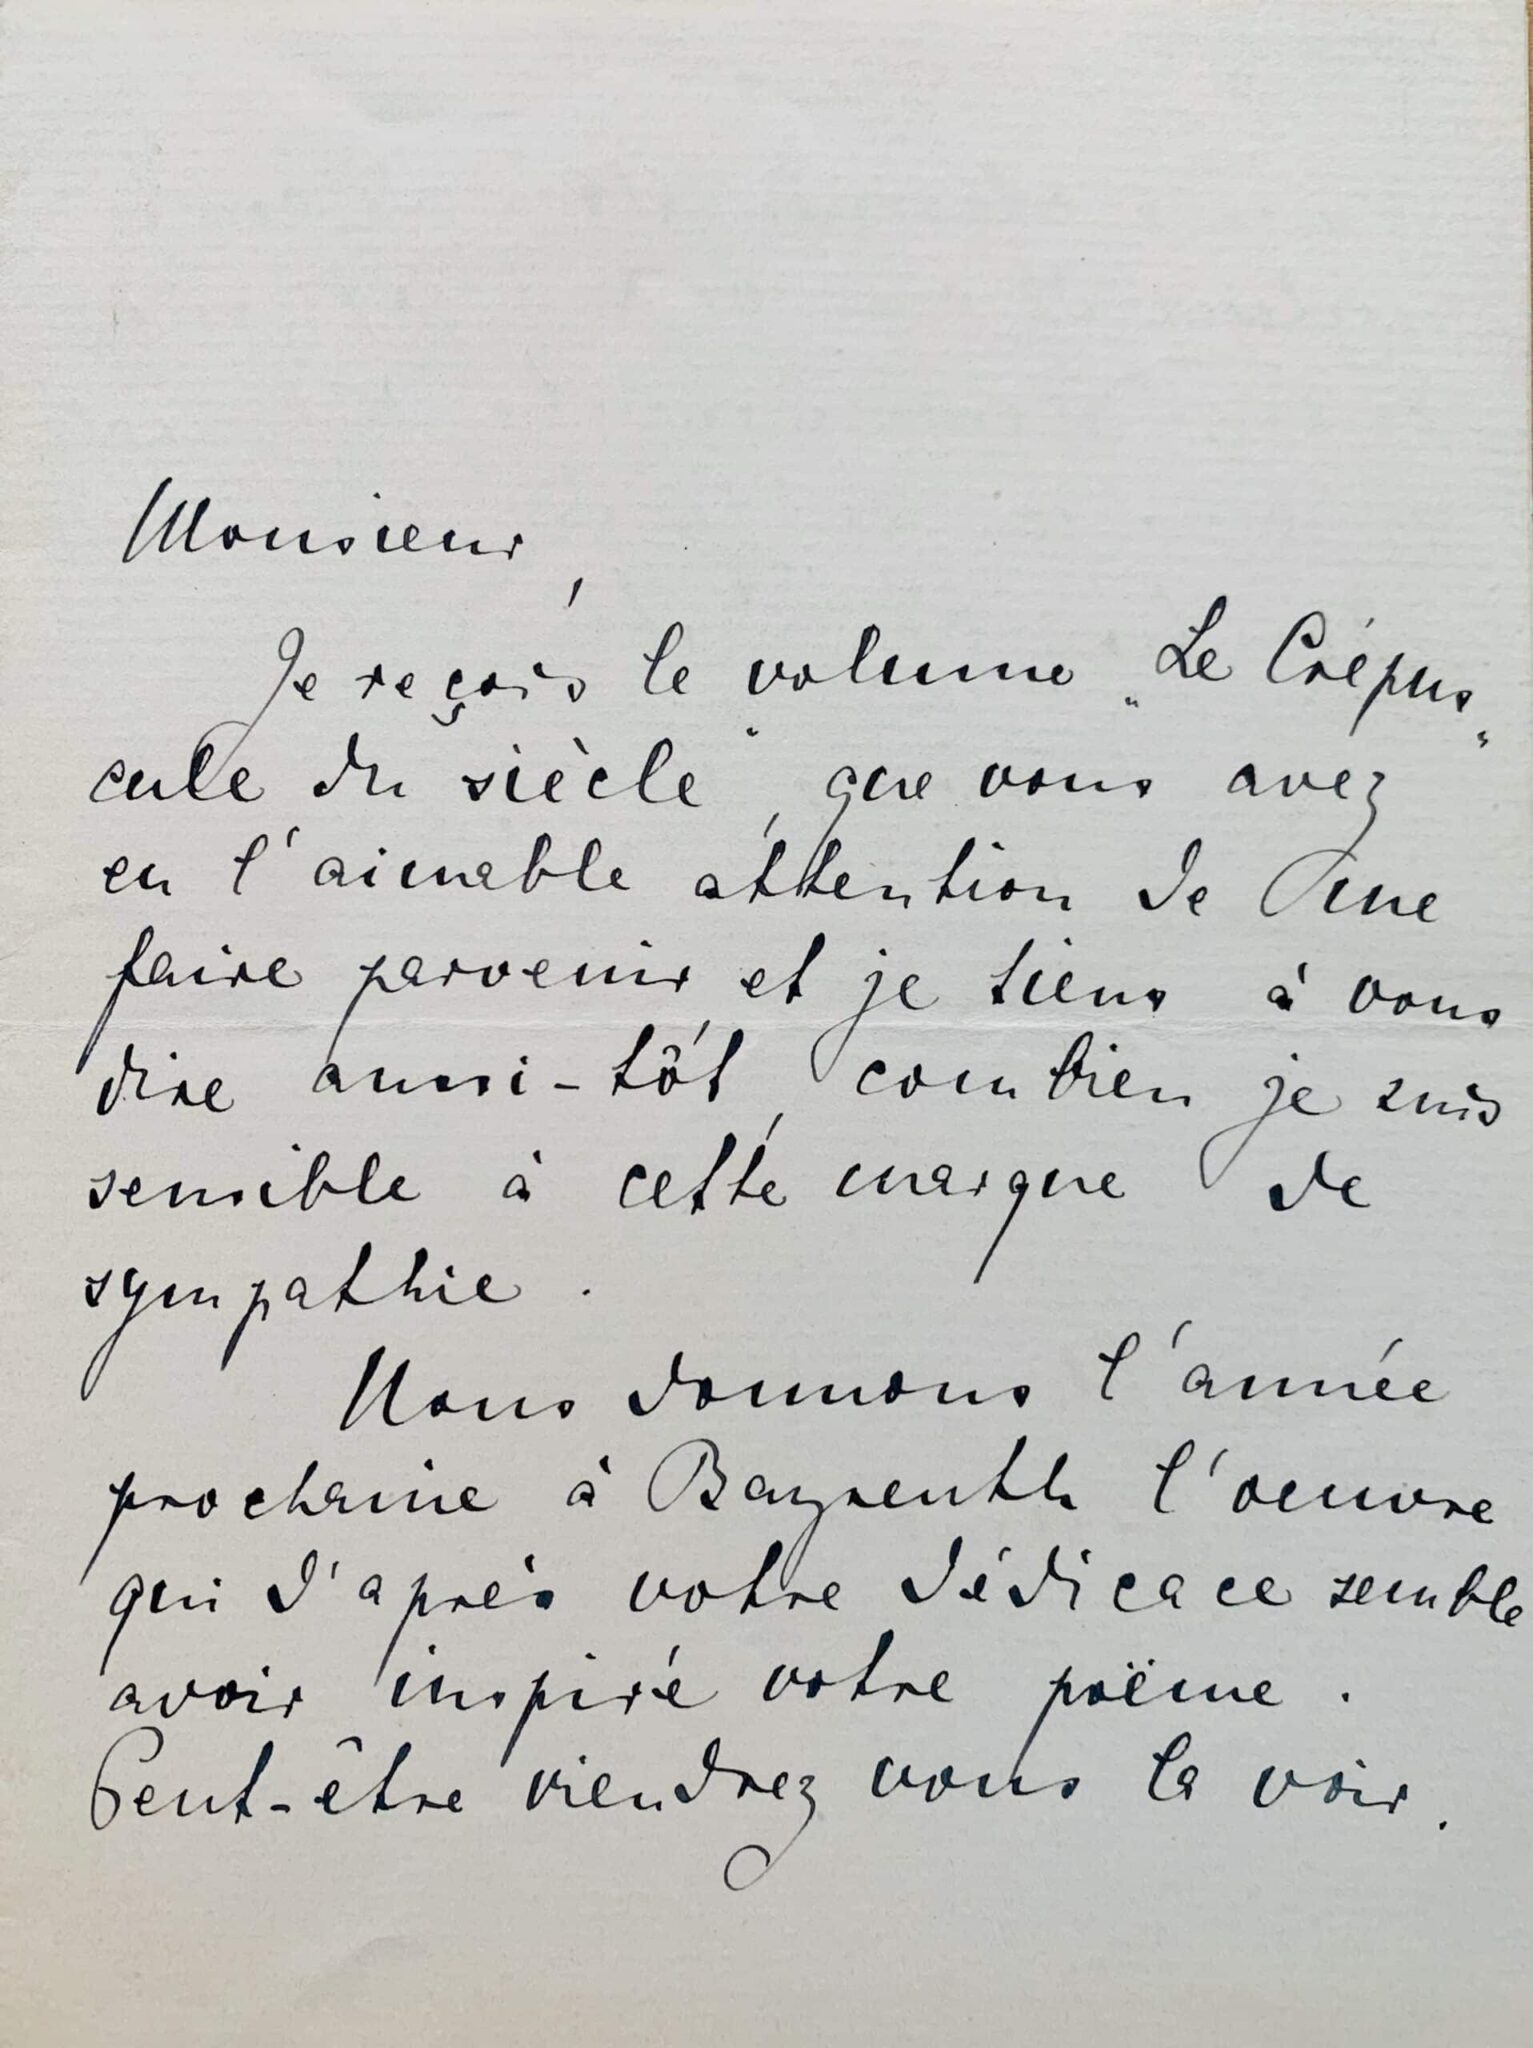 Monsieur,
Je reçois le volume „Le Crépus„
cule du siècle", que vous avez
eu l'aimable attention de me
faire parvenir et je tiens à vous
dire aussi-tôt, combien je suis
sensible à cette marque de
sympathie.
Nous donnons l'année
prochaine à Bayreuth l'oeuvre
qui d'après votre dédicace semble
avoir inspiré votre poëme.
Peut-être viendrez vous la voir.